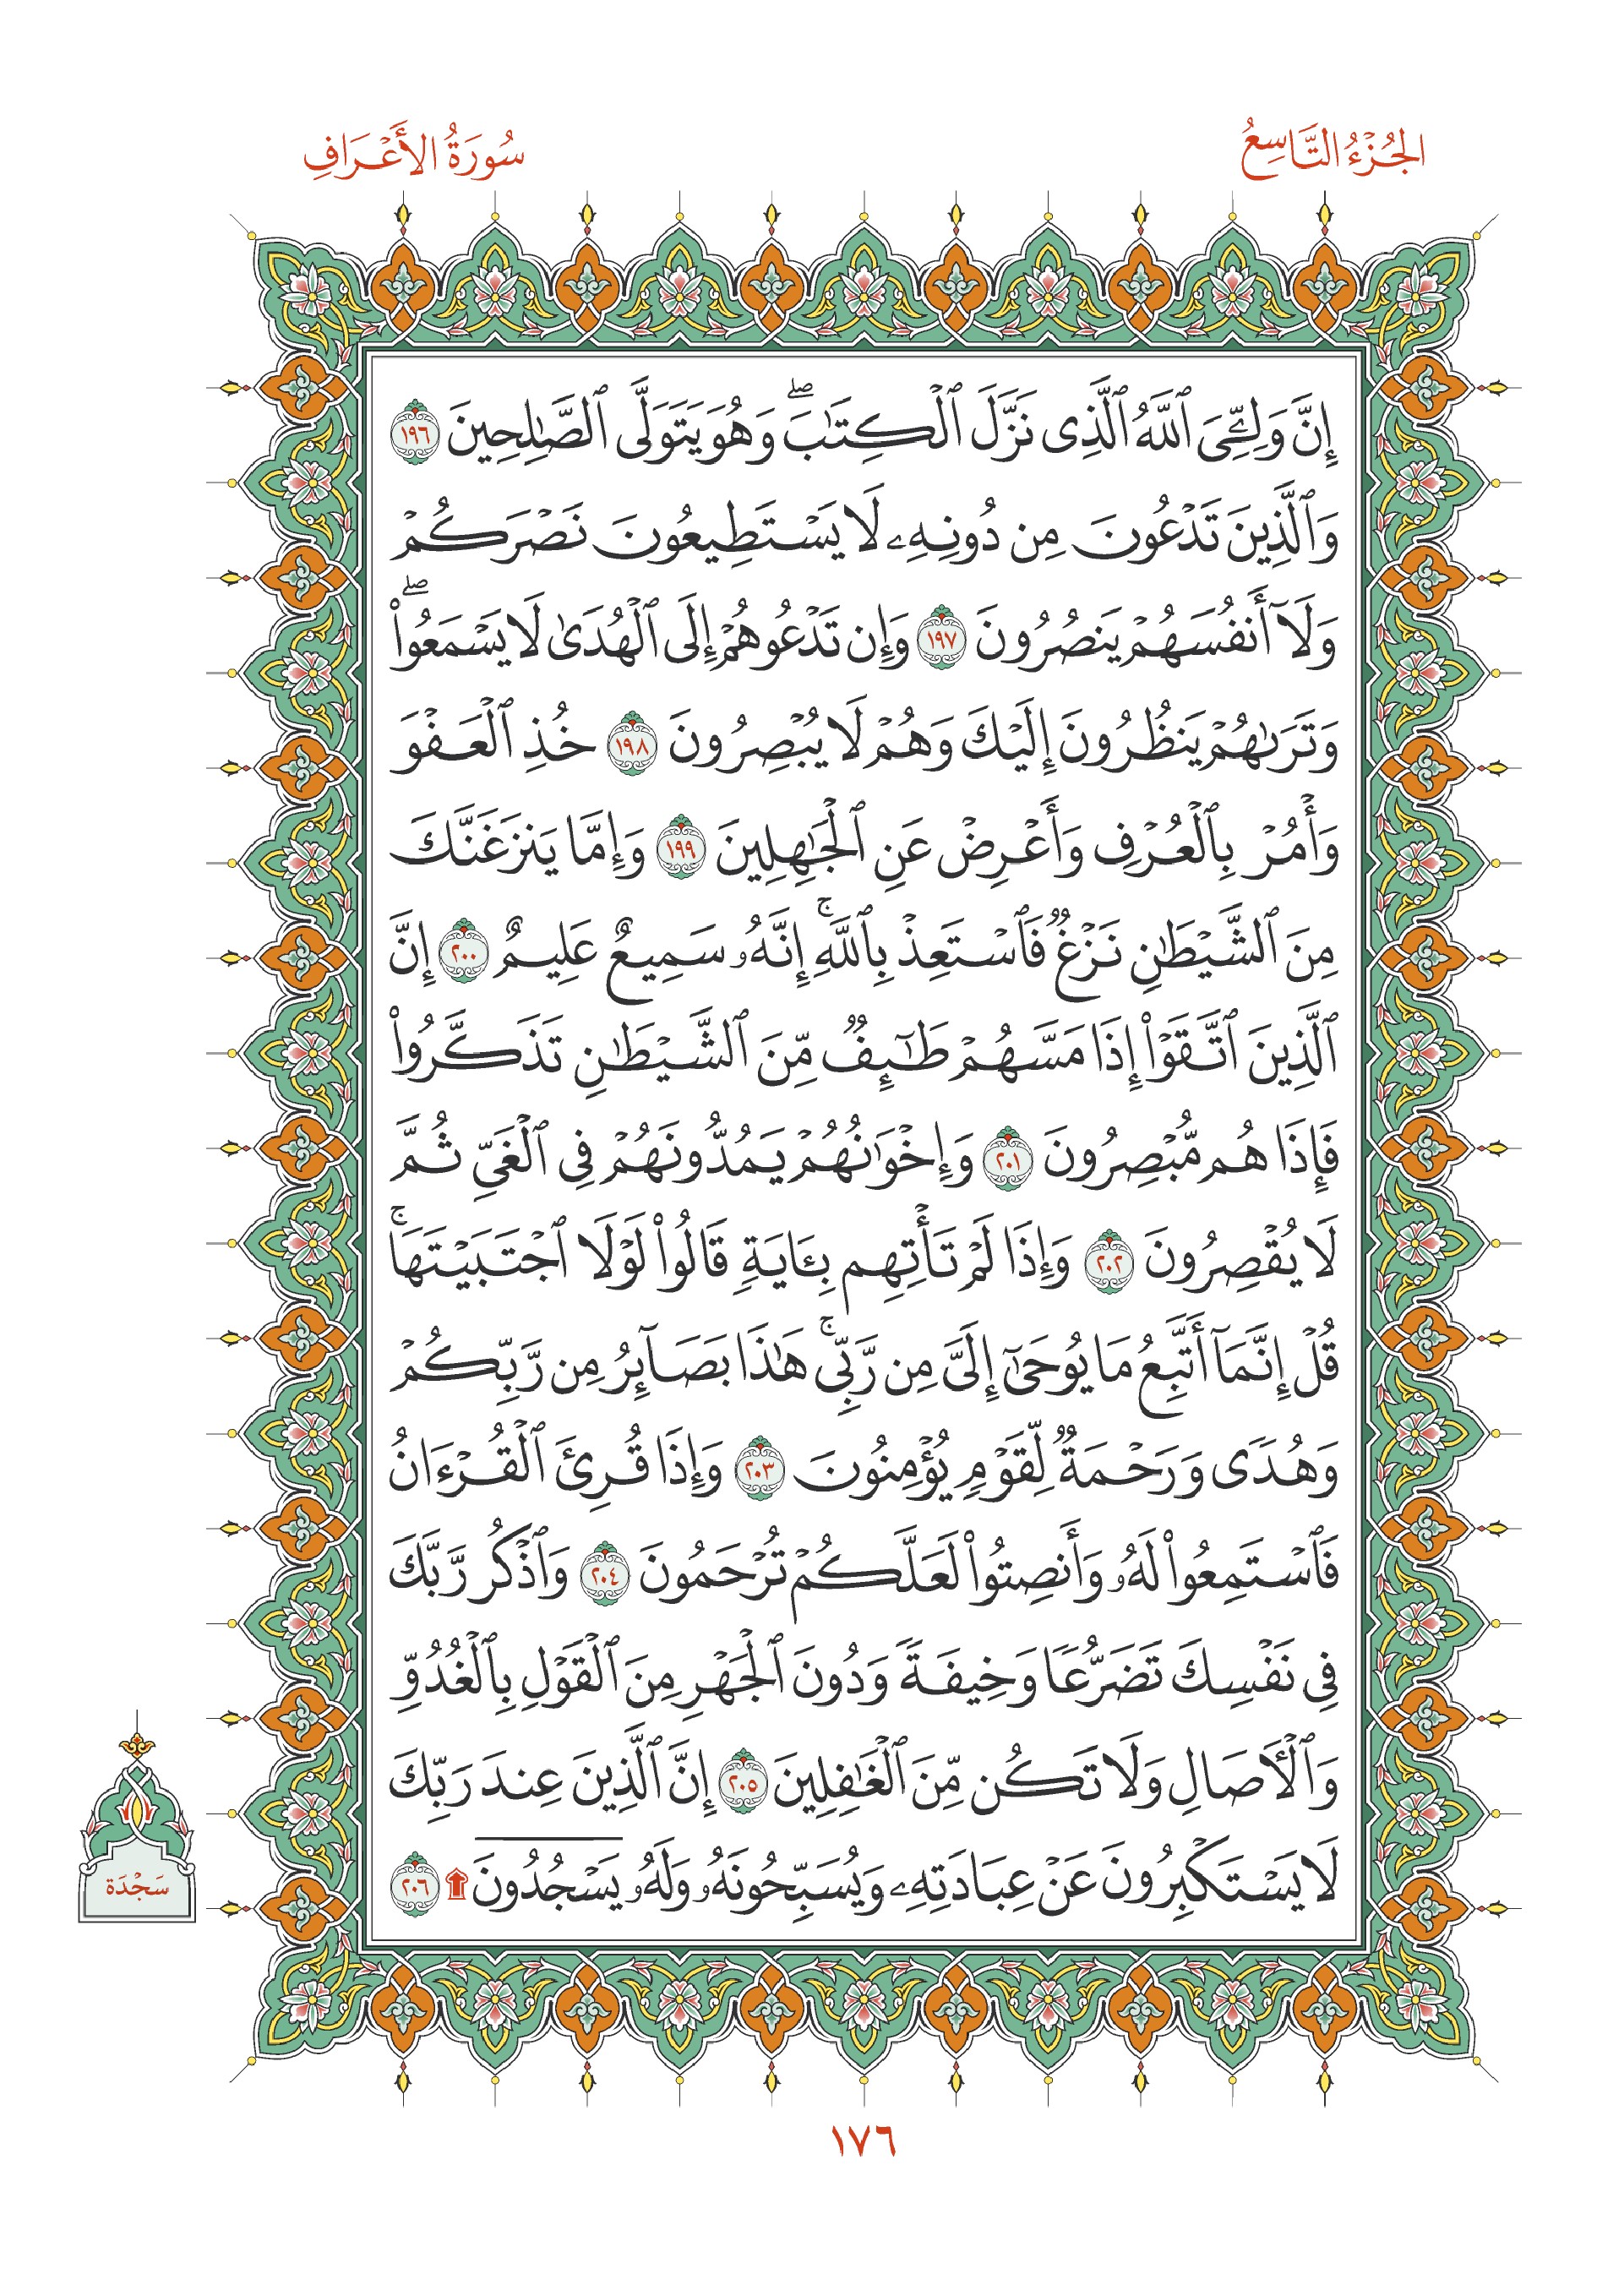 الجُزْءُ التَّاسِعُ
سُورَةُ الأَعْرَافِ
إِنَّ وَلِـِّۧيَ ٱللَّهُ ٱلَّذِي نَزَّلَ ٱلۡكِتَٰبَۖ وَهُوَ يَتَوَلَّى ٱلصَّٰلِحِينَ ١٩٦
وَٱلَّذِينَ تَدۡعُونَ مِن دُونِهِۦ لَا يَسۡتَطِيعُونَ نَصۡرَكُمۡ
وَلَآ أَنفُسَهُمۡ يَنصُرُونَ ١٩٧ وَإِن تَدۡعُوهُمۡ إِلَى ٱلۡهُدَىٰ لَا يَسۡمَعُواْۖ
وَتَرَىٰهُمۡ يَنظُرُونَ إِلَيۡكَ وَهُمۡ لَا يُبۡصِرُونَ ١٩٨ خُذِ ٱلۡعَفۡوَ
وَأۡمُرۡ بِٱلۡعُرۡفِ وَأَعۡرِضۡ عَنِ ٱلۡجَٰهِلِينَ ١٩٩ وَإِمَّا يَنزَغَنَّكَ
مِنَ ٱلشَّيۡطَٰنِ نَزۡغٞ فَٱسۡتَعِذۡ بِٱللَّهِۚ إِنَّهُۥ سَمِيعٌ عَلِيمٌ ٢٠٠ إِنَّ
ٱلَّذِينَ ٱتَّقَوۡاْ إِذَا مَسَّهُمۡ طَٰٓئِفٞ مِّنَ ٱلشَّيۡطَٰنِ تَذَكَّرُواْ
فَإِذَا هُم مُّبۡصِرُونَ ٢٠١ وَإِخۡوَٰنُهُمۡ يَمُدُّونَهُمۡ فِي ٱلۡغَيِّ ثُمَّ
لَا يُقۡصِرُونَ ٢٠٢ وَإِذَا لَمۡ تَأۡتِهِم بِـَٔايَةٖ قَالُواْ لَوۡلَا ٱجۡتَبَيۡتَهَاۚ
قُلۡ إِنَّمَآ أَتَّبِعُ مَا يُوحَىٰٓ إِلَيَّ مِن رَّبِّيۚ هَٰذَا بَصَآئِرُ مِن رَّبِّكُمۡ
وَهُدٗى وَرَحۡمَةٞ لِّقَوۡمٖ يُؤۡمِنُونَ ٢٠٣ وَإِذَا قُرِئَ ٱلۡقُرۡءَانُ
فَٱسۡتَمِعُواْ لَهُۥ وَأَنصِتُواْ لَعَلَّكُمۡ تُرۡحَمُونَ ٢٠٤ وَٱذۡكُر رَّبَّكَ
فِي نَفۡسِكَ تَضَرُّعٗا وَخِيفَةٗ وَدُونَ ٱلۡجَهۡرِ مِنَ ٱلۡقَوۡلِ بِٱلۡغُدُوِّ
وَٱلۡأٓصَالِ وَلَا تَكُن مِّنَ ٱلۡغَٰفِلِينَ ٢٠٥ إِنَّ ٱلَّذِينَ عِندَ رَبِّكَ
لَا يَسۡتَكۡبِرُونَ عَنۡ عِبَادَتِهِۦ وَيُسَبِّحُونَهُۥ وَلَهُۥ يَسۡجُدُونَۤ ۩ ٢٠٦
سَجْدَة
١٧٦